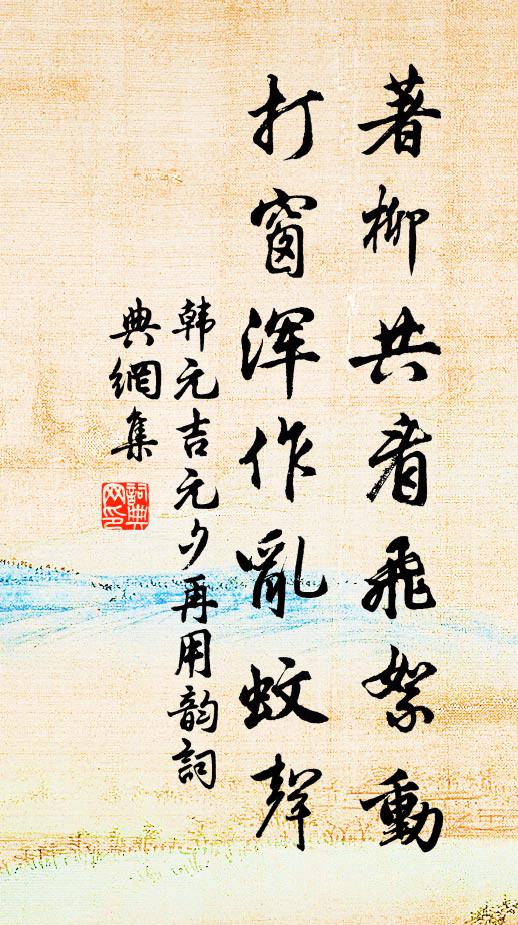 著柳共看飛絮動
打窗浑作亂蚊聲
韩元吉元夕再用韵詞
典網集
詞典
网印